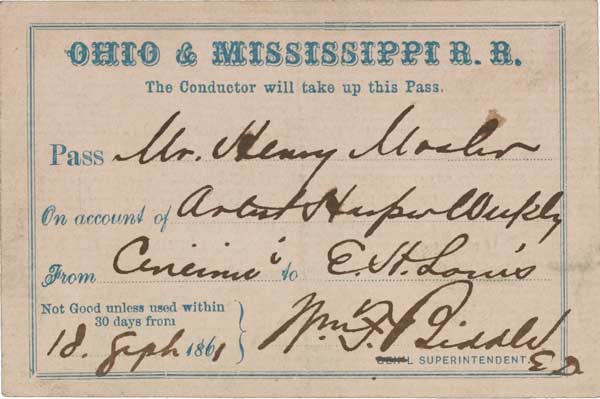 OHIO & MISSISSIPPI R. R.
The Conductor will take up this Pass.
Pass Mr. Henry Mosler
On account of Artist Harper Weekly
From Cincinni to E. St. Louis
Not Good unless used within
30 days from
18. Sept 1861
Wm. F. Biddle
GEN'L SUPERINTENDENT.